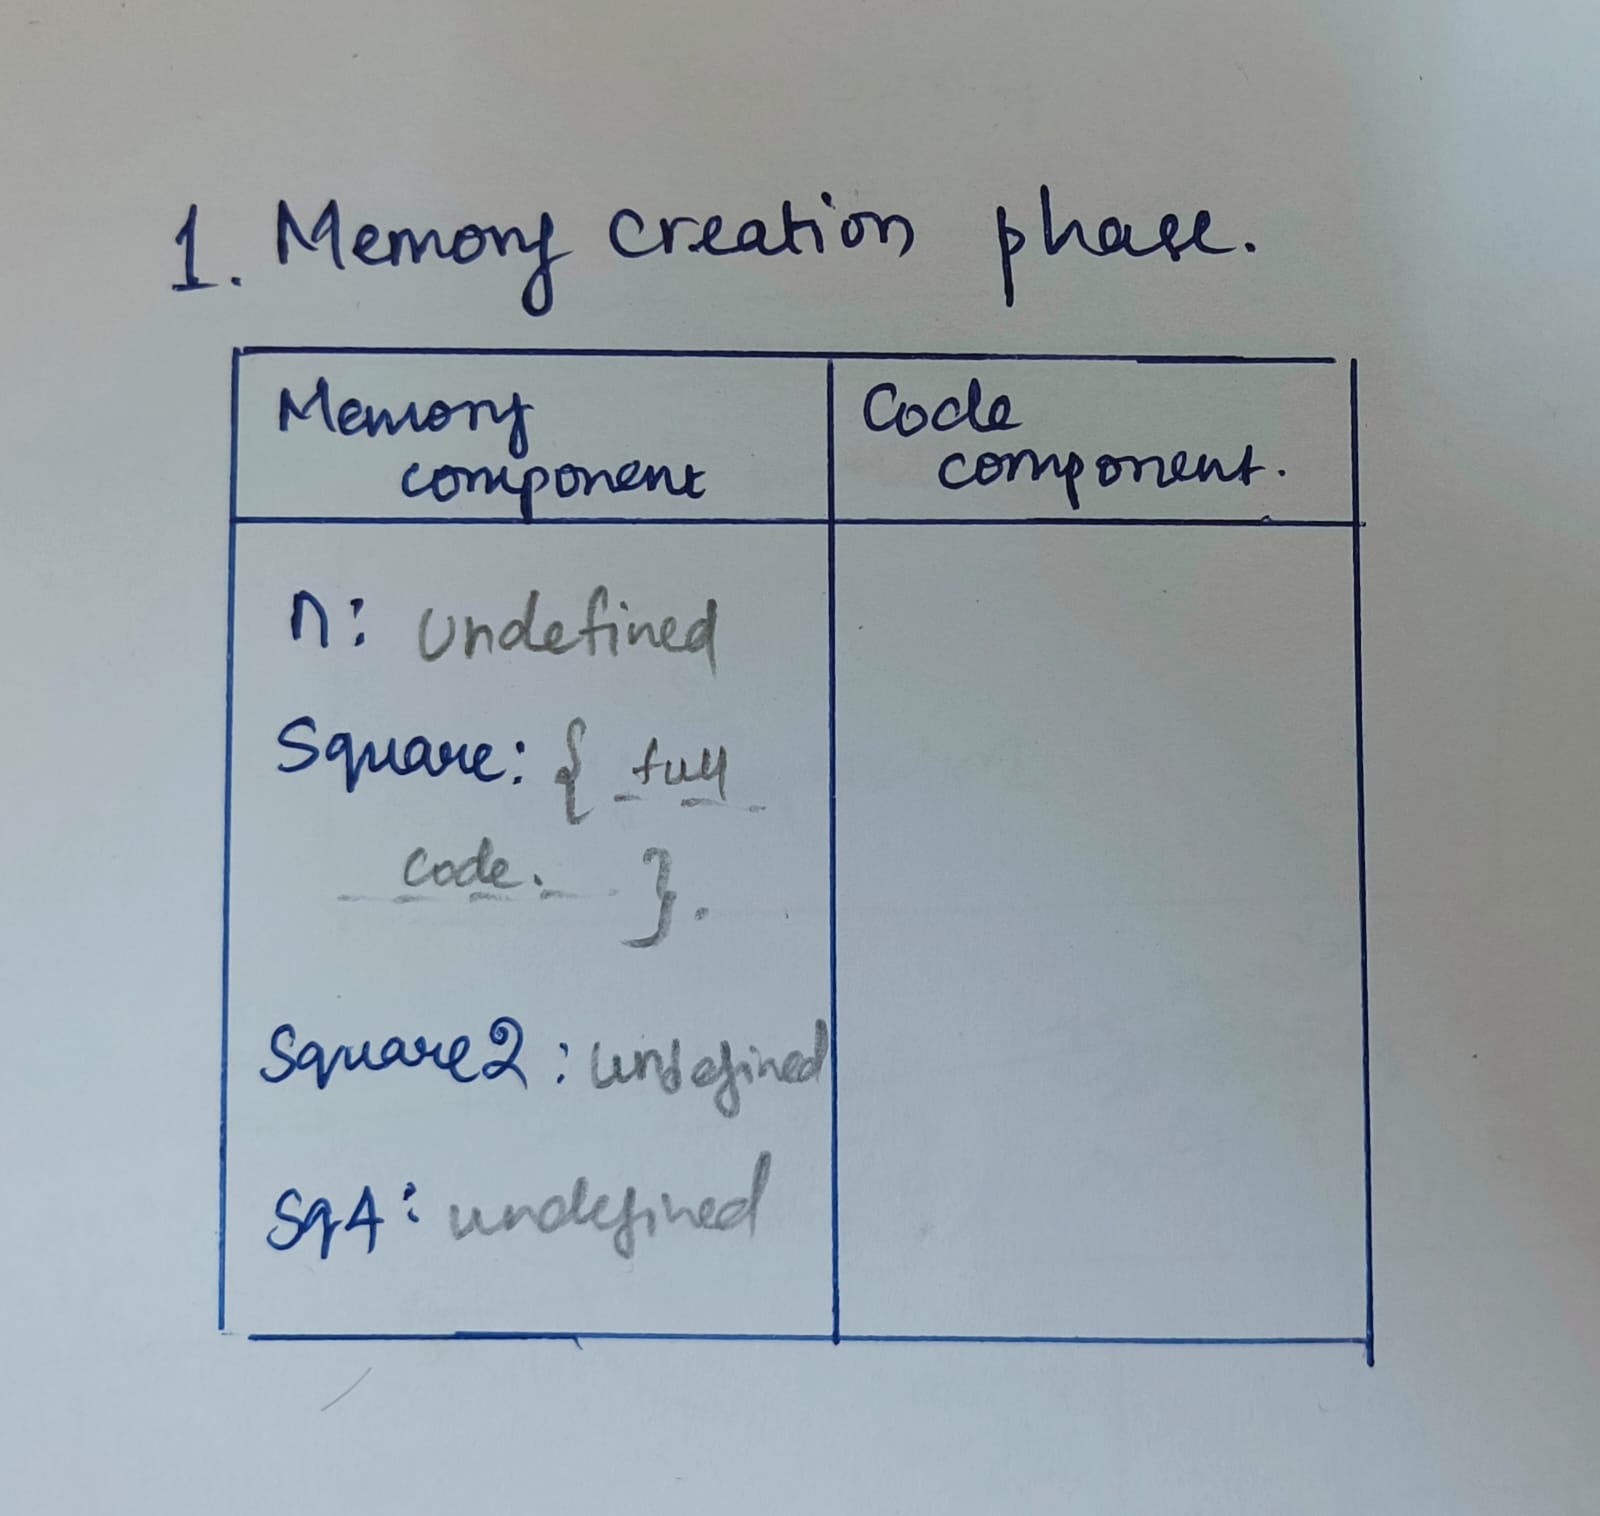 1. Memory creation phase.
Memory
component
Code
component.
n: undefined
Square: { full
code. }.
Square2 : undefined
Sq4: undefined